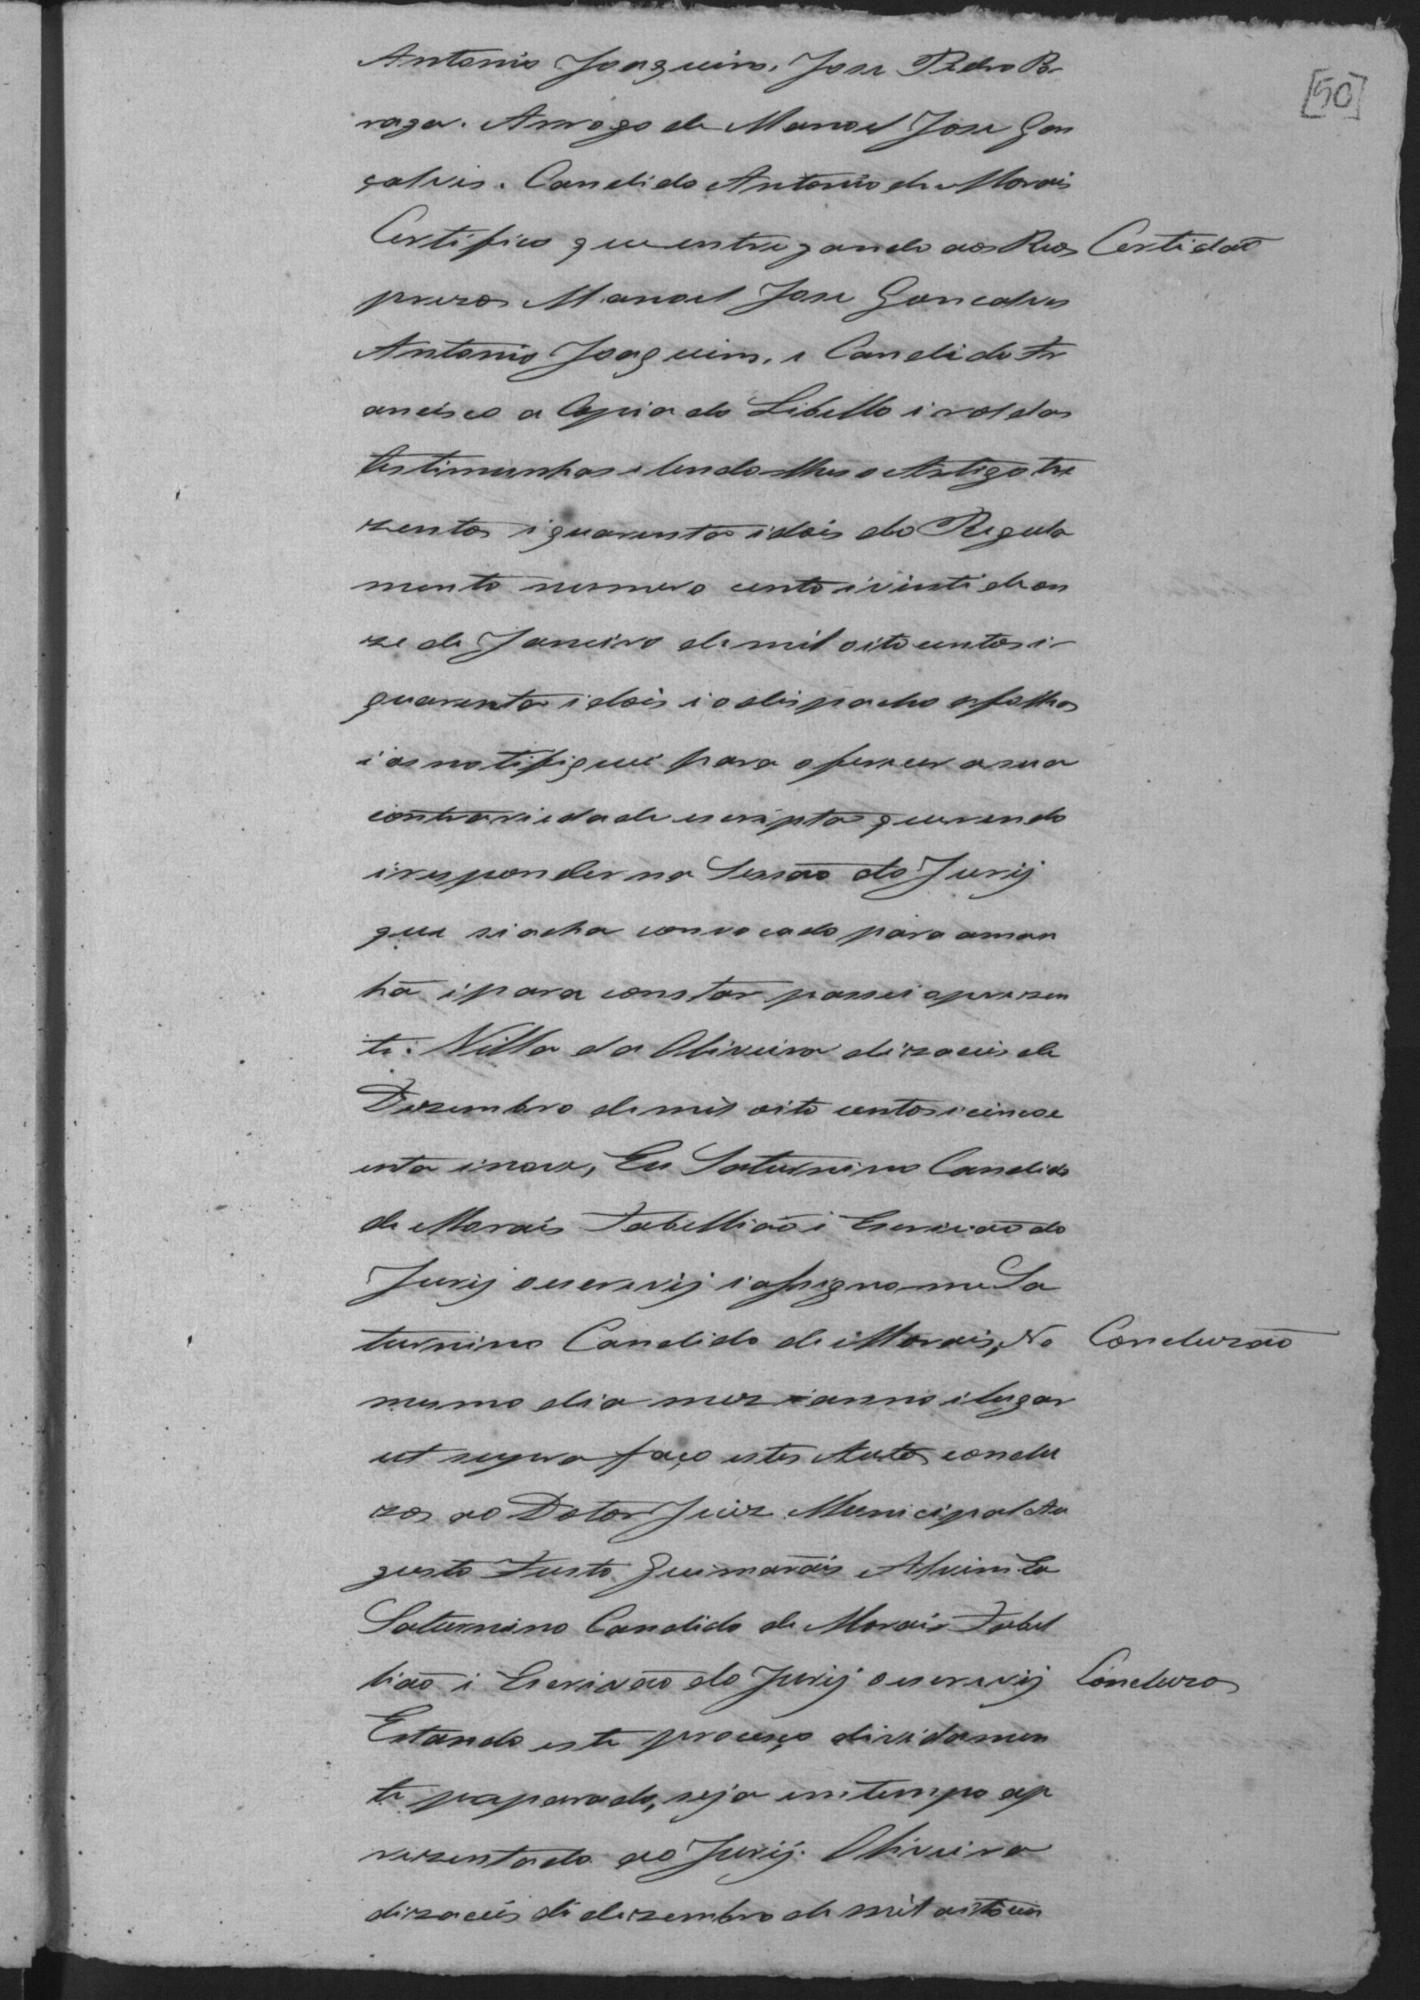 [50]
Antonio Joaquim. Jose Pedro B-
raga. Arrogo de Manoel Jose Gon
çalvis. Candido Antonio de Morais
Certifico que entregando aos Reos
Certidaõ
prezos Manoel Jose Goncalves
Antonio Joaquim, i Candido Fr
ancisco a Copia do Libello i rol das
testimunhas i lendo lhes o Artigo tre
zentos i quarenta i dois do Regula
mento numero cento i vinti de on
ze de Janeiro de mil oito centos i
quarenta i dois i o dispacho a folhas
i os notifiquei para oferecer a sua
contrariedade escripta querendo
i responder na Sessaõ do Jurij
que si acha convocado para aman
hã i para constar passei a prezen
te: Villa da Oliveira dizaceis de
Dezembro de mil oito centos i cinco
enta i nove, Eu Saturnino Candido
de Morais Tabelliaõ i Escrivaõ do
Jurij o escrevij i assigno me Sa
turnino Candido de Morais, No
Concluzaõ
mesmo dia mez i anno i lugar
ut supra faço estes Autos conclu
zos ao Dotor Juiz Municipal Au
gusto Fausto Guimaraẽs Alvim Eu
Saturnino Candido de Morais Tabel
liaõ i Escrivaõ do Jurij o escrevij
Concluzos
Estando este proceço dividamen
te preparado, seja em tempo ap
rezentado ao Jurij. Oliveira
dizaceis di dezembro de mil oito cen